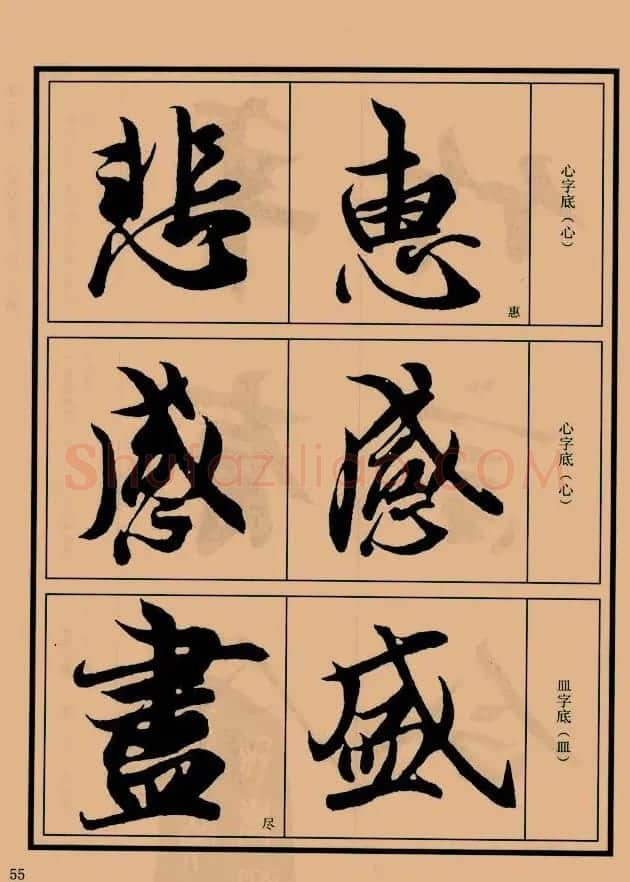 心字底（心）
惠
惠
悲
心字底（心）
感
感
皿字底（皿）
盛
盡
尽
55
Shufaziliao.COM